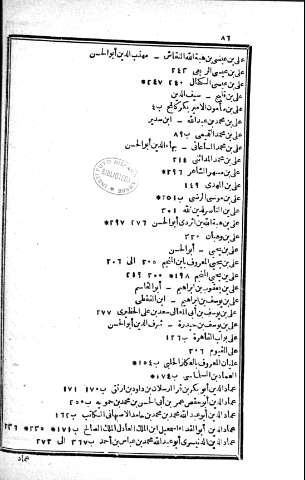 ٨٦
علي بن عيسى بن هبة الله النقاش — مهذب الدين أبو الحسن
علي بن عيسى الربعي ٢٤٣
علي بن عيسى الكحال ٢٤٠ ٢٤٧*
علي بن فليح — سيف الدين
علي بن مأمون الامير بكركانج ب٤
علي بن محمد بن عبد الله — ابن مدير
علي بن محمد القمعي ب٨٩
علي بن محمد الساعاتي — بهاء الدين أبو الحسن
علي بن محمد المدائني ٢١٤
علي بن مسهر الشاعر ٢٩٦*
علي بن المهدي ١٤٩
علي بن موسى الرضي ب٢٥١*
علي بن الناصر لدين الله ٣٠١
علي بن هبة الله بن اثردي أبو الحسن ٢٧٦ ٢٩٧*
علي بن وهبان ٢٢٠
علي بن يحيى — أبو الحسن
علي بن يحيى المعروف بابن المنجم ٢٠٥ الى ٢٠٦
علي بن يحيى المنجم ١٩٨* ٢٠٠ ٢١٩
علي بن يعقوب بن ابراهيم — أبو القاسم
علي بن يوسف بن ابراهيم — ابن القفطي
علي بن يوسف بن أبي المعالي سعد بن علي الحظيري ٢٧٧
علي بن يوسف بن حيدرة — شرف الدين أبو الحسن
علي بواب القاهرة ب١٢٦
علي القيوم ٢٠٦
عليان المعروف بالعكار الحلبي ب١٥٤*
العماد بن السلماسي ب١٧٤*
عماد الدين أبو بكر بن قرا ارسلان بن داود بن ارتق ب١٧٠ ١٧١
عماد الدين أبو حفص عمر بن أبي الحسن بن محمد بن حمويه ب٢٥٠
عماد الدين أبو عبد الله محمد بن محمد بن حامد الاصبهاني الكاتب ب١٦٢
عماد الدين أبو الفداء اسماعيل ابن الملك العادل الملك الصالح ب١٧٤* ٢٣٥ ٢٣٦
عماد الدين الدنيسري أبو عبد الله محمد بن عباس بن أحمد ب٢٦٧ الى ٢٧٣
عماد